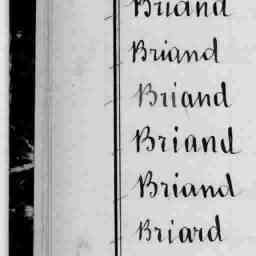 Briand
Briand
Briand
Briand
Briand
Briard